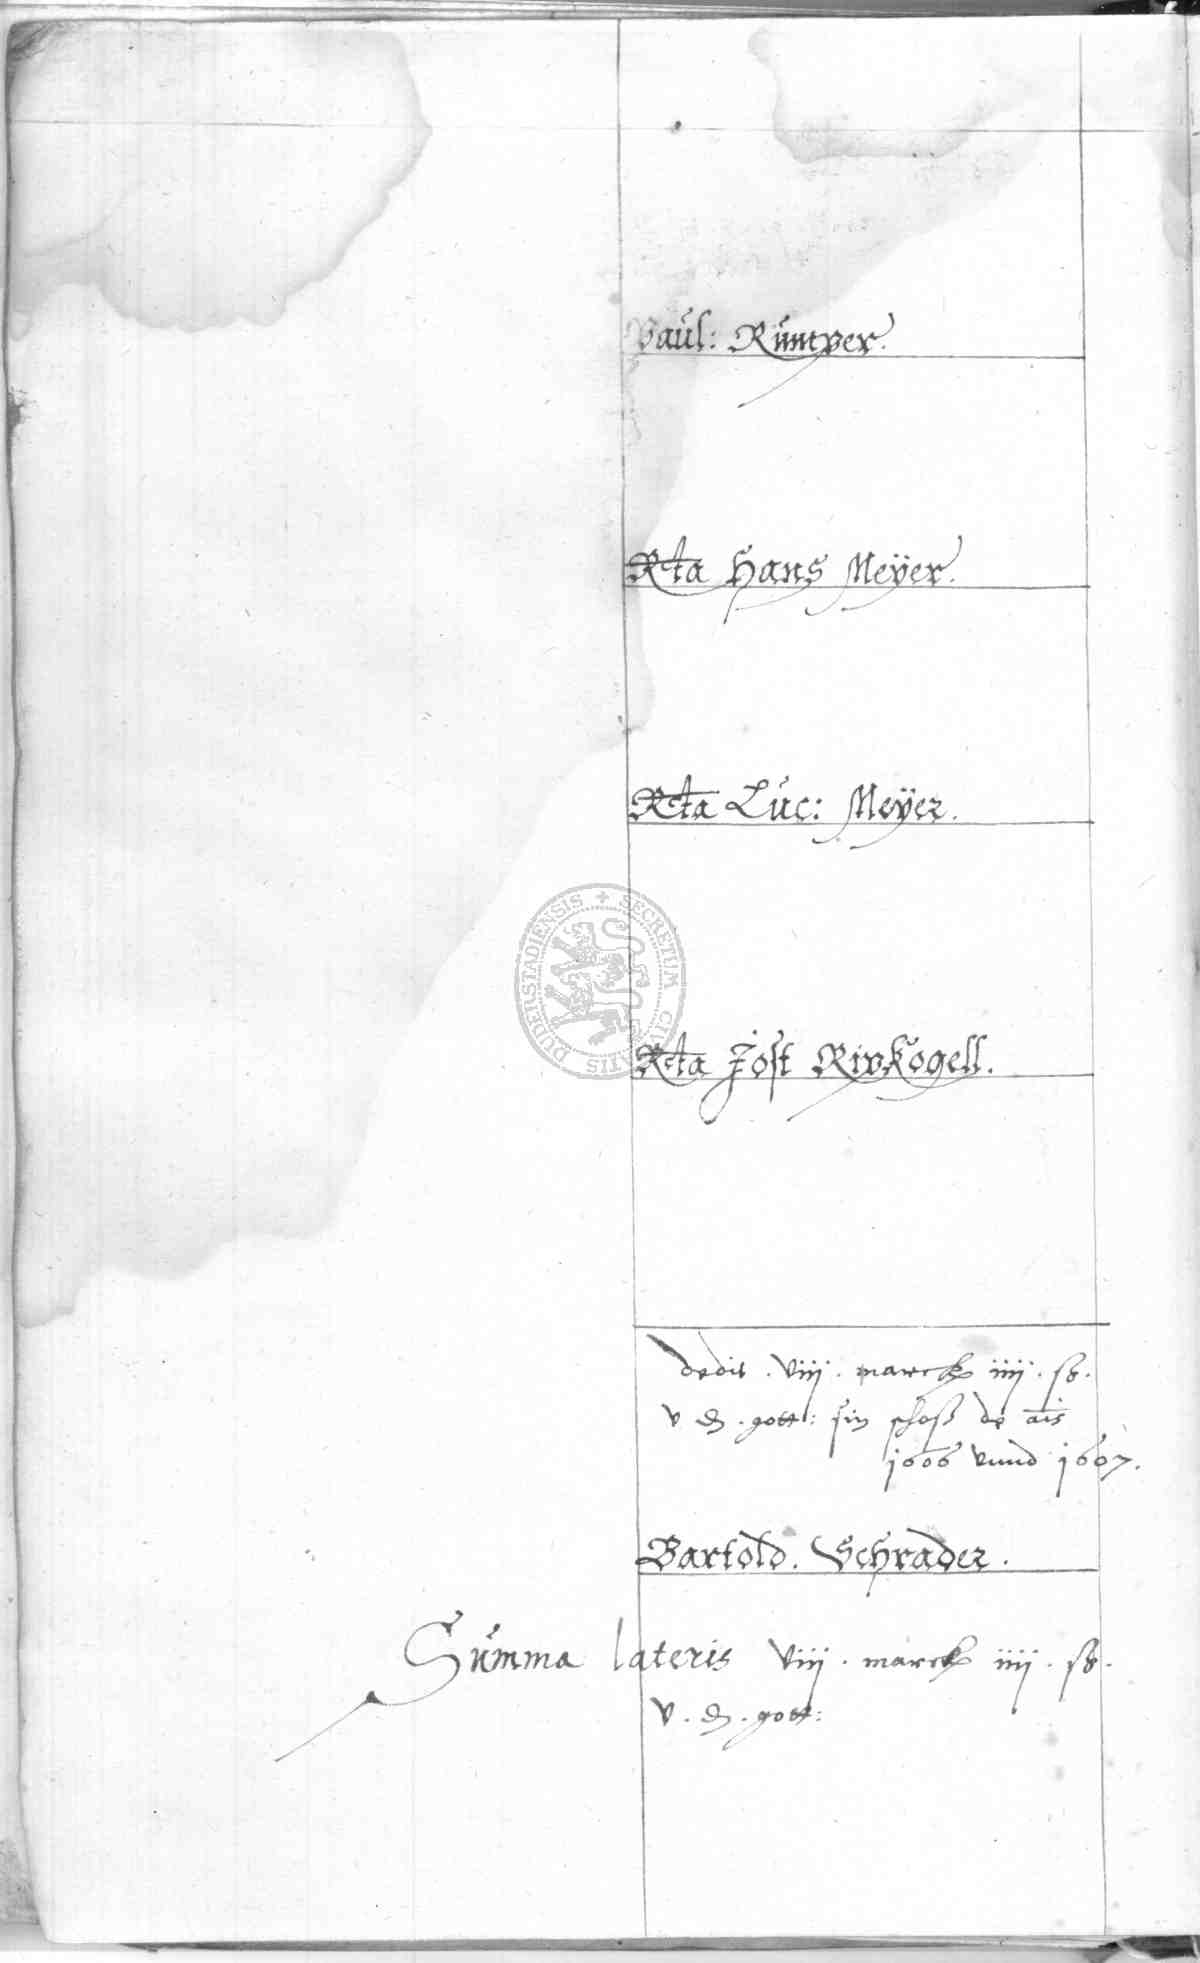 Paul: Rümper.
Rta Hans Meÿer.
Rta Luc: Meÿer.
SECRETUM CIVITATIS DUDERSTADIENSIS
Rta Jost Ripkogell.
dedit . viiij . marck iiij . ß .
v d . gott: sin schoß de ais
1606 vnnd 1607.
Bartold . Schrader .
Summa lateris viiij . marck iiij . ß .
v . d . gott: